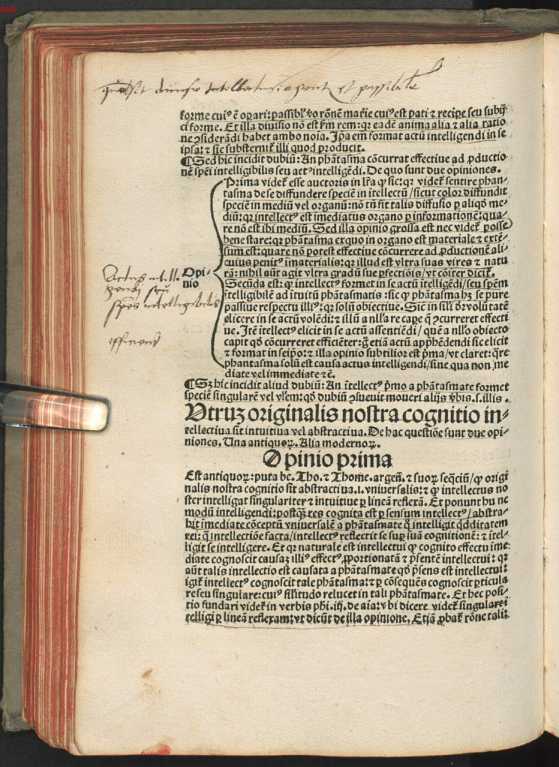 forme cuiꝰ ē oꝑari: passibl' vo rōnem mat'ie cuiꝰ est pati ⁊ recipe seu subij
ci forme. Et illa divisio nō est ẜm rem: qꝛ eadē anima alia ⁊ alia ratio
ne ꝯsiderādi habet ambo noīa. Ip̄a em̄ format actū intelligendi in se
ipsa: ⁊ sic substernit illi quod producit.
¶ Sed hic incidit dubiū: An phātasma cōcurrat effective ad ꝓductio
nē sp̄ei intelligibilis seu actꝰ intelligēdi. De quo sunt due opiniones.
Prima videt̉ esse auctoris in lr̄a ꝙ sic: qꝛ videt̉ sentire phan-
tasma de se diffundere speciē in ītellectū / sicut color diffundit
speciē in mediū vel organū: nō tn̄ fit talis diffusio ꝑ aliqḋ me-
diū: qꝛ intellectꝰ est imediatus organo ꝑ informationē: qua-
re nō est ibi mediū. Sed illa opinio grossa est nec videt̉ posse
bene stare: qꝛ phātasma exquo in organo est materiale ⁊ extē-
sum est: quare nō potest effective cōcurrere ad ꝓductionē ali-
cuius penitꝰ imaterialis: qꝛ illud est vltra suas vires ⁊ natu
rā: nihil aūt agit vltra gradū sue ꝑfectiōis / vt cōiter dicit̉.
Opi-
nio
Secūda est: ꝙ intellectꝰ format in se actū ītelligēdi / seu spēm
ītelligibilē ad ītuitū phātasmatis: sic ꝙ phātasma hꝫ se pure
passive respectu illiꝰ: qꝛ solū obiective. Sicut in sil'i d'voluītate
elicere in se actū volēdi: ⁊ illū a null'o re cape q̄ ꝯcurreret effecti
ve. Itē ītellectꝰ elicit in se actū assentiēdi / quē a null'o obiecto
capit qḋ cōcurreret efficiēter: ḡ etiā actū app̄hēdendi sic elicit
⁊ format in seip̄o: ⁊ illa opinio subtilior est p̄ma / vt claret: qr̄e
phantasma solū est causa actus intelligendi / sine qua non / me
diate vel immediate ⁊č.
¶ Sꝫ hic incidit aliud dubiū: An ītellectꝰ p̄mo a phātasmate formet
speciē singularē vel vl'em: qḋ dubiū ꝯsuevit moueri alijs v̄bis. s. illis.
Vtruꝫ originalis nostra cognitio in-
tellectiua sit intuitiua vel abstractiua. De hac questiōe sunt due opi-
niones. Una antiquoꝝ. Alia modernoꝝ.
Opinio prima
Est antiquoꝝ: puta be. Tho. ⁊ Thome. argeñ. ⁊ suoꝝ seq̄ciū / ꝙ origi
nalis nostra cognitio sit abstractiua .i. vniuersalis: ⁊ ꝙ intellectus no
ster intelligat singulariter ⁊ intuitiue ꝑ lineā reflexā. Et ponunt hunc
modū intelligendi: postꝙ̄ res cognita est ꝑ sensum intellectꝰ / abstra-
hit īmediate cōceptū vniuersalē a phātasmate q̄ intelligit qḋditatem
rei: q̄ intellectiōe facta / intellectꝰ reflectit se suꝑ suā cognitionē: ⁊ itel-
ligit se intelligere. Et qꝛ naturale est intellectui ꝙ cognito effectu ime
diate cognoscit causaꝫ illiꝰ effectꝰ ꝓportionatā ⁊ p̄sentē intellectui: qꝛ
aūt talis intellectio est causata a phātasmate qḋ p̄sens est intellectui:
igit̉ intellectꝰ cognoscit tale phātasma: ⁊ ꝑ cōsequēs cognoscit ꝑticula
re seu singulare: cuiꝰ sil'itudo relucet in tali phātasmate. Et hec posi-
tio fundari videt̉ in verbis phi. iij. de aīa: vbi dicere videt̉ singulare ī
telligi ꝑ lineā reflexam: vt dicūt de illa opinione. Etiā ꝓbat̉ rōne tali: